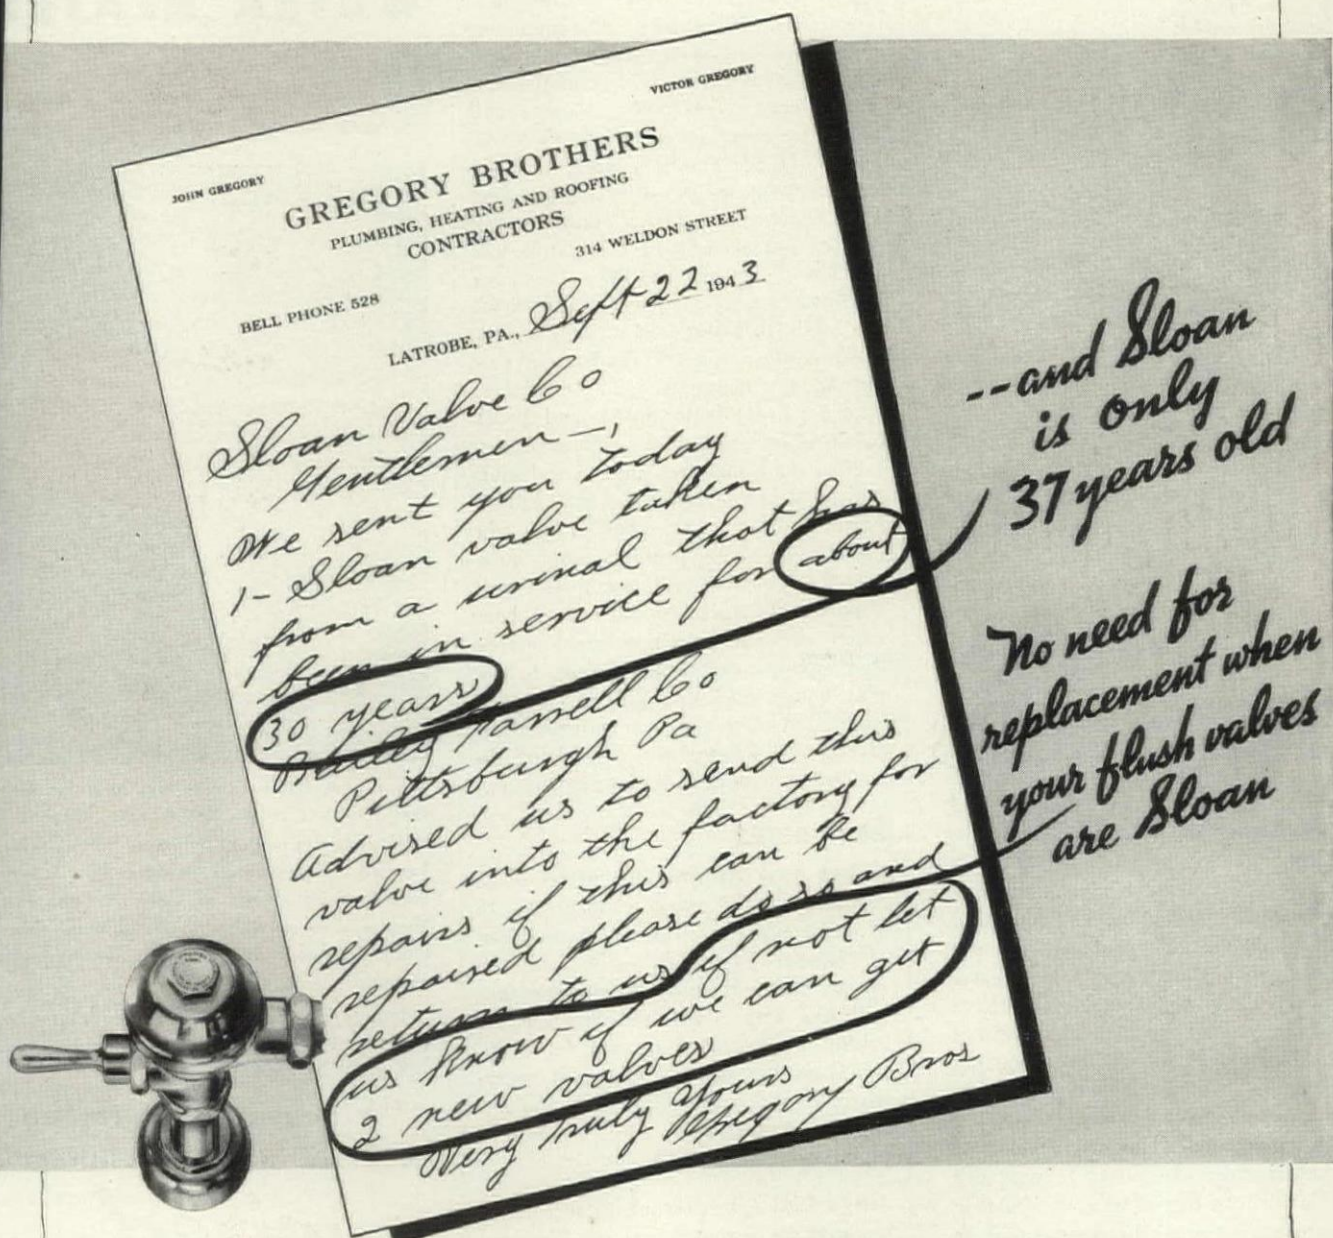 VICTOR GREGORY
JOHN GREGORY
GREGORY BROTHERS
PLUMBING, HEATING AND ROOFING
CONTRACTORS
314 WELDON STREET
BELL PHONE 528
LATROBE, PA., Sept 22 1943
Sloan Valve Co
Gentlemen—,
We sent you today
1- Sloan valve taken
from a urinal that has
been in service for about
30 years
Bailey Farrell Co
Pittsburgh Pa
Advised us to send this
valve into the factory for
repairs if this can be
repaired please do so and
return to us if not let
us know if we can get
2 new valves
Very Truly Yours
Gregory Bros
--and Sloan
is only
37 years old
No need for
replacement when
your flush valves
are Sloan